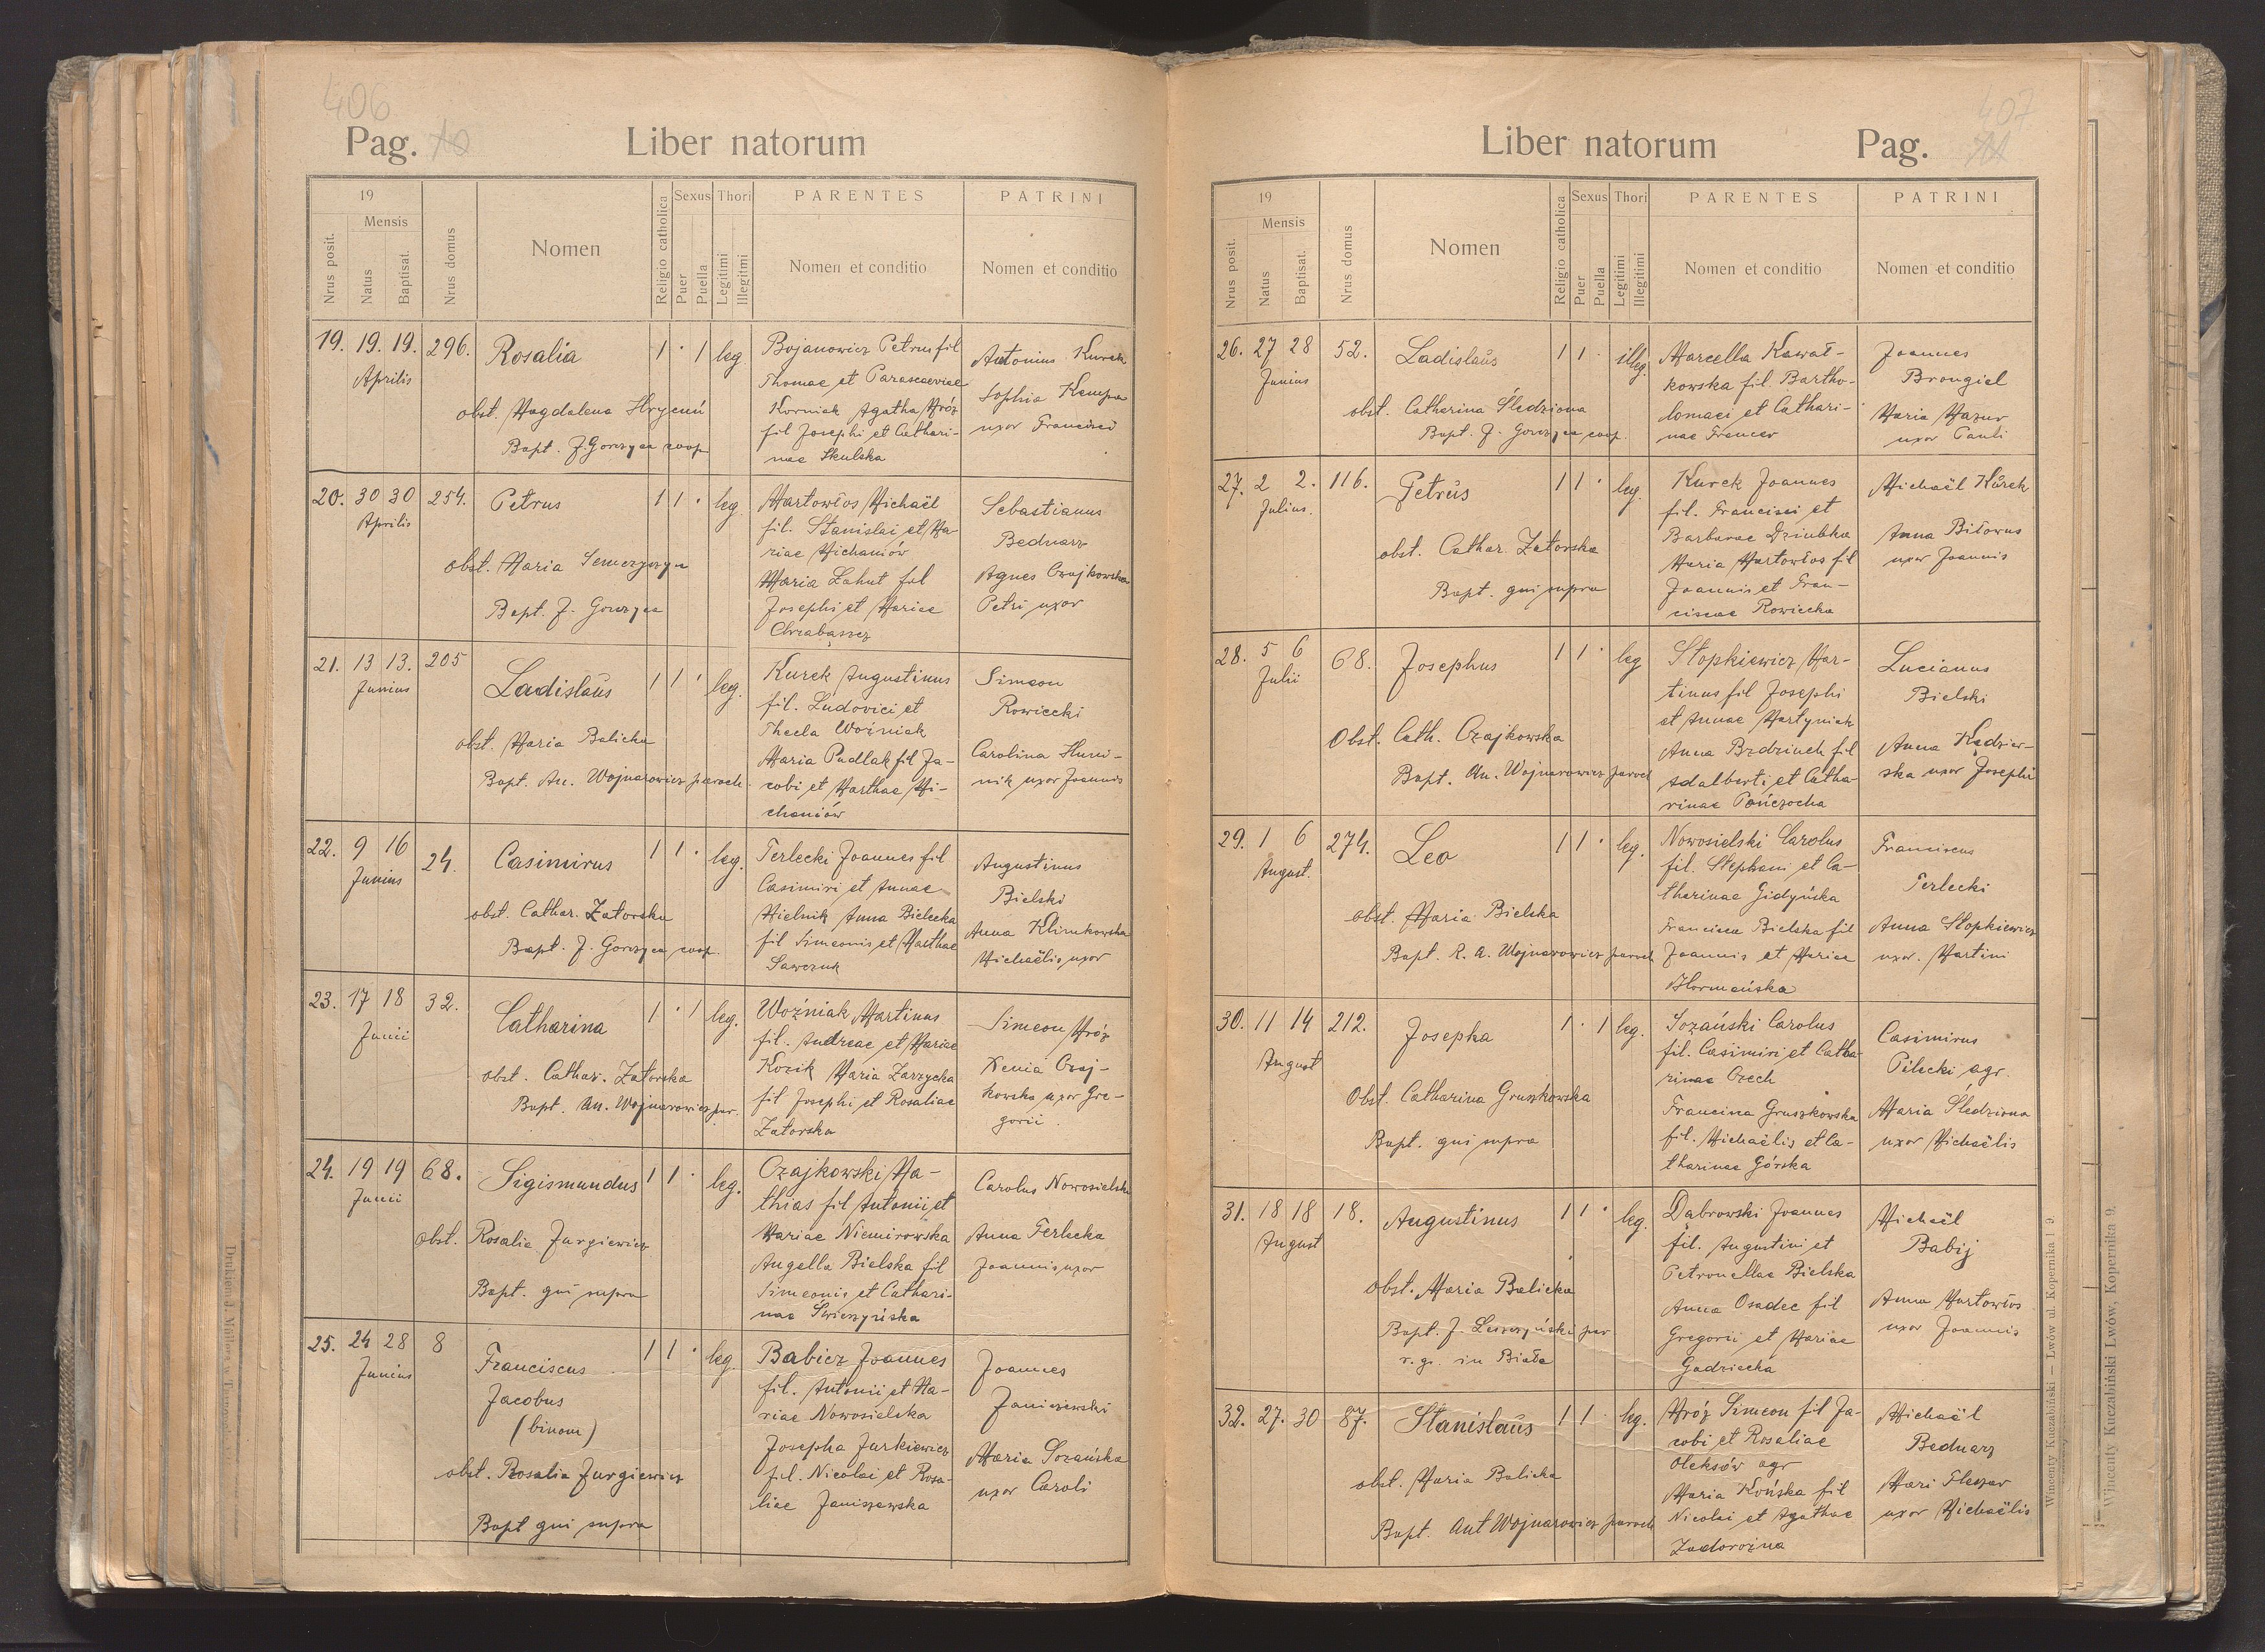 406
Pag. 10
Liber natorum
19
Mensis
Nrus posit.
Natus
Baptisat.
Nrus domus
Nomen
Religio catholica
Sexus
Puer
Puella
Thori
Legitimi
Illegitmi
PARENTES
Nomen et conditio
PATRINI
Nomen et conditio
19. 19. 19. 296. Rosalia 1 · 1 leg
Aprilis
obst. Magdalena Hryciu
Bapt. J. Gorczyca coop
Bojanowicz Petrus fil
Thomae et Parasceviae
Korniak Agatha Mróz
fil Josephi et Cathari-
nae Skulska
Antonius Kurek
Sophia Kempa
uxor Francisci
20. 30 30 254. Petrus 1 1 · leg.
Aprilis
obst. Maria Semczyszyn
Bapt. J. Gorczyca
Martowłos Michaël
fil. Stanislai et Ma-
riae Michaniów
Maria Łahut fil
Josephi et Mariae
Chrabąszcz
Sebastianus
Bednarz
Agnes Czajkowska
Petri uxor
21. 13 13. 205 Ladislaus 1 1 · leg.
Junius
obst. Maria Balicka
Bapt. An. Wojnarowicz paroch.
Kurek Augustinus
fil. Ludovici et
Thecla Woźniak
Maria Pudlak fil Ja-
cobi et Marthae Mi-
chaniów
Simeon
Rowiecki
Carolina Humi-
nik uxor Joannis
22. 9 16 24. Casimirus 1 1 · leg.
Junius
obst. Cathar. Zatorska
Bapt. J. Gorczyca coop.
Terlecki Joannes fil
Casimiri et Annae
Mielnik Anna Bielecka
fil Simeonis et Marthae
Sawczuk
Augustinus
Bielski
Anna Klimkowska
Michaëlis uxor
23. 17 18 32. Catharina 1 · 1 leg.
Junii
obst. Cathar. Zatorska
Bapt. An. Wojnarowicz par.
Woźniak Martinus
fil. Andreae et Mariae
Kozik Maria Zarzycka
fil Josephi et Rosaliae
Zatorska
Simeon Mróz
Xenia Czaj-
kowska uxor Gre-
gorii
24. 19 19 68. Sigismundus 1 1 · leg.
Junii
obst. Rosalia Jurgiewicz
Bapt. qui supra
Czajkowski Ma-
thias fil Antonii et
Mariae Niemirowska
Angella Bielska fil
Simeonis et Cathari-
nae Świerzyńska
Carolus Nowosielski
Anna Terlecka
Joannis uxor
25. 24 28 8 Franciscus 1 1 · leg.
Junius
Jacobus
(binom)
obst. Rosalia Jurgiewicz
Bapt qui supra
Babicz Joannes
fil. Antonii et Ma-
riae Nowosielska
Josepha Jurkiewicz
fil. Nicolai et Rosa-
liae Janiszewska
Joannes
Janiszewski
Maria Sozańska
uxor Caroli
407
Liber natorum
Pag. 11
19
Mensis
Nrus posit.
Natus
Baptisat.
Nrus domus
Nomen
Religio catholica
Sexus
Puer
Puella
Thori
Legitimi
Illegitimi
PARENTES
Nomen et conditio
PATRINI
Nomen et conditio
26. 27 28 52. Ladislaus 1 1 · illeg.
Junius
obst. Catharina Śledziona
Bapt. J. Gorczyca coop.
Marcella Kawał-
kowska fil. Bartho-
lomaei et Cathari-
nae Francer
Joannes
Brongiel
Maria Mazur
uxor Pauli
27. 2 2. 116. Petrus 1 1 · leg.
Julius.
obst. Cathar. Zatorska
Bapt. qui supra
Kurek Joannes
fil. Francisci et
Barbarae Dziubka
Maria Martowłos fil
Joannis et Fran-
ciscae Rowiecka
Michaël Kurek
Anna Biłowus
uxor Joannis
28. 5 6 68. Josephus 1 1 · leg
Julii
Obst. Cath. Czajkowska
Bapt. An. Wojnarowicz paroch
Słopkiewicz Mar-
tinus fil Josephi
et Annae Martyniak
Anna Bzdziuch fil
Adalberti et Catha-
rinae Pończocha
Lucianus
Bielski
Anna Kędzier-
ska uxor Josephi
29. 1 6 274. Leo 1 1 · leg.
August.
obst. Maria Bielska
Bapt. R. A. Wojnarowicz paroch
Nowosielski Carolus
fil. Stephani et Ca-
tharinae Gidyńska
Francisca Bielska fil
Joannis et Mariae
Hormańska
Franciscus
Terlecki
Anna Słopkiewicz
uxor. Martini
30. 11 14 212. Josepha 1 · 1 leg.
August
Obst. Catharina Gruszkowska
Bapt. qui supra
Sozański Carolus
fil. Casimiri et Catha-
rinae Czech
Francisca Gruszkowska
fil. Michaëlis et Ca-
tharinae Górska
Casimirus
Pilecki agr.
Maria Śledziona
uxor Michaëlis
31. 18 18 18. Augustinus 1 1 · leg.
August
obst. Maria Balicka
Bapt. J. Leszczyński par
r. gr. in Biała
Dąbrowski Joannes
fil. Augustini et
Petronellae Bielska
Anna Osadec fil
Gregorii et Mariae
Gadziecka
Michaël
Babij
Anna Martowłos
uxor Joannis
32. 27. 30 87. Stanislaus 1 1 · leg.
obst. Maria Balicka
Bapt. Ant Wojnarowicz paroch
Mróz Simeon fil Ja-
cobi et Rosaliae
Oleksów agr
Maria Końska fil
Nicolai et Agathae
Zadorożna
Michaël
Bednarz
Mari Fleszar
uxor Michaëlis
Wincenty Kuczabiński — Lwów ul. Kopernika l 9.
Wincenty Kuczabiński Lwów, Kopernika 9.